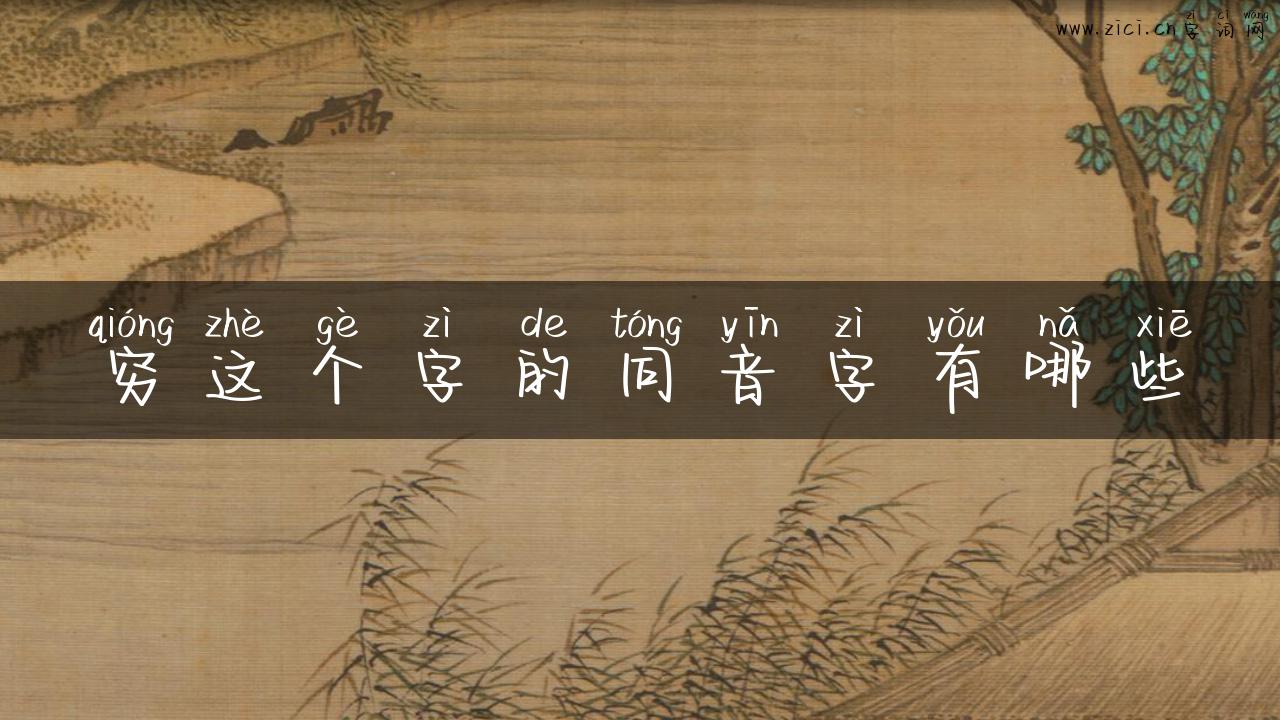 zì cí wǎng
www.zici.cn字词网
qióng zhè gè zì de tóng yīn zì yǒu nǎ xiē
穷这个字的同音字有哪些